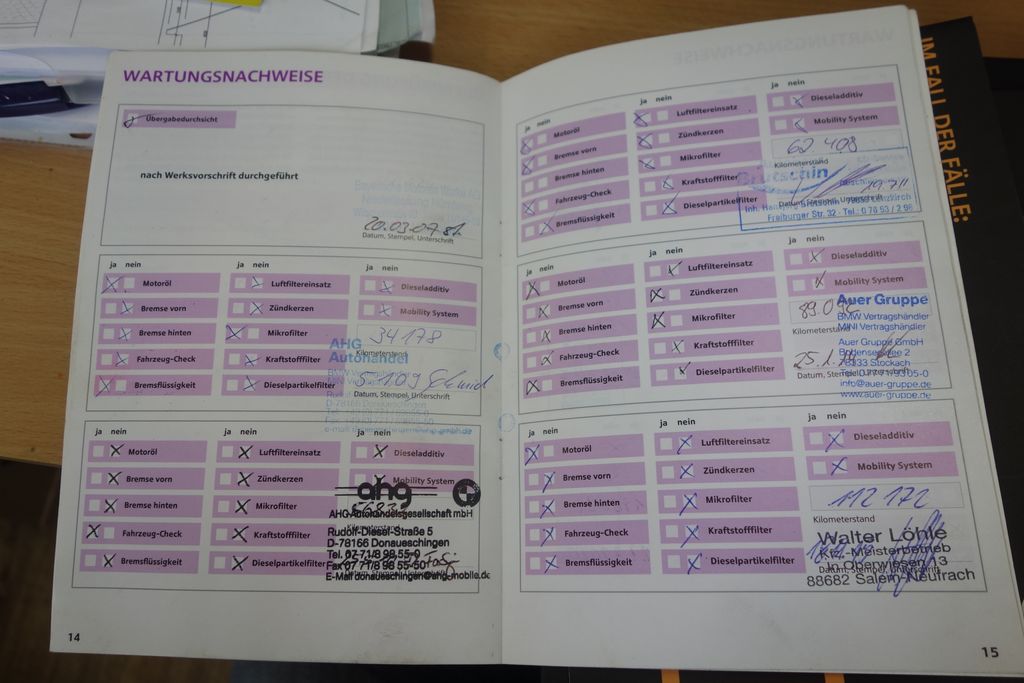 WARTUNGSNACHWEISE
Übergabedurchsicht
nach Werksvorschrift durchgeführt
20.03.07
Datum, Stempel, Unterschrift
ja nein
Motoröl
Bremse vorn
Bremse hinten
Fahrzeug-Check
Bremsflüssigkeit
ja nein
Luftfiltereinsatz
Zündkerzen
Mikrofilter
Kraftstofffilter
Dieselpartikelfilter
ja nein
Dieseladditiv
Mobility System
34178
Kilometerstand
AHG
Autohandel
Datum, Stempel, Unterschrift
D-78166 Donaueschingen
ja nein
Motoröl
Bremse vorn
Bremse hinten
Fahrzeug-Check
Bremsflüssigkeit
ja nein
Luftfiltereinsatz
Zündkerzen
Mikrofilter
Kraftstofffilter
Dieselpartikelfilter
ja nein
Dieseladditiv
Mobility System
ahg
AHG Autohandelsgesellschaft mbH
Kilometerstand
Rudolf-Diesel-Straße 5
D-78166 Donaueschingen
Tel. 07 71/8 98 55-0
Fax 07 71/8 98 55-50
E-Mail donaueschingen@ahg-mobile.de
14
ja nein
Motoröl
Bremse vorn
Bremse hinten
Fahrzeug-Check
Bremsflüssigkeit
ja nein
Luftfiltereinsatz
Zündkerzen
Mikrofilter
Kraftstofffilter
Dieselpartikelfilter
ja nein
Dieseladditiv
Mobility System
62 408
Kilometerstand
Datum, Stempel, Unterschrift
Freiburger Str. 32
ja nein
Motoröl
Bremse vorn
Bremse hinten
Fahrzeug-Check
Bremsflüssigkeit
ja nein
Luftfiltereinsatz
Zündkerzen
Mikrofilter
Kraftstofffilter
Dieselpartikelfilter
ja nein
Dieseladditiv
Mobility System
Auer Gruppe
BMW Vertragshändler
MINI Vertragshändler
Kilometerstand
Auer Gruppe GmbH
78333 Stockach
info@auer-gruppe.de
www.auer-gruppe.de
ja nein
Motoröl
Bremse vorn
Bremse hinten
Fahrzeug-Check
Bremsflüssigkeit
ja nein
Luftfiltereinsatz
Zündkerzen
Mikrofilter
Kraftstofffilter
Dieselpartikelfilter
ja nein
Dieseladditiv
Mobility System
112 172
Kilometerstand
Walter Löhle
Kfz.-Meisterbetrieb
In Oberwiesen 13
Datum, Stempel, Unterschrift
88682 Salem-Neufrach
15
IM FALL DER FÄLLE: